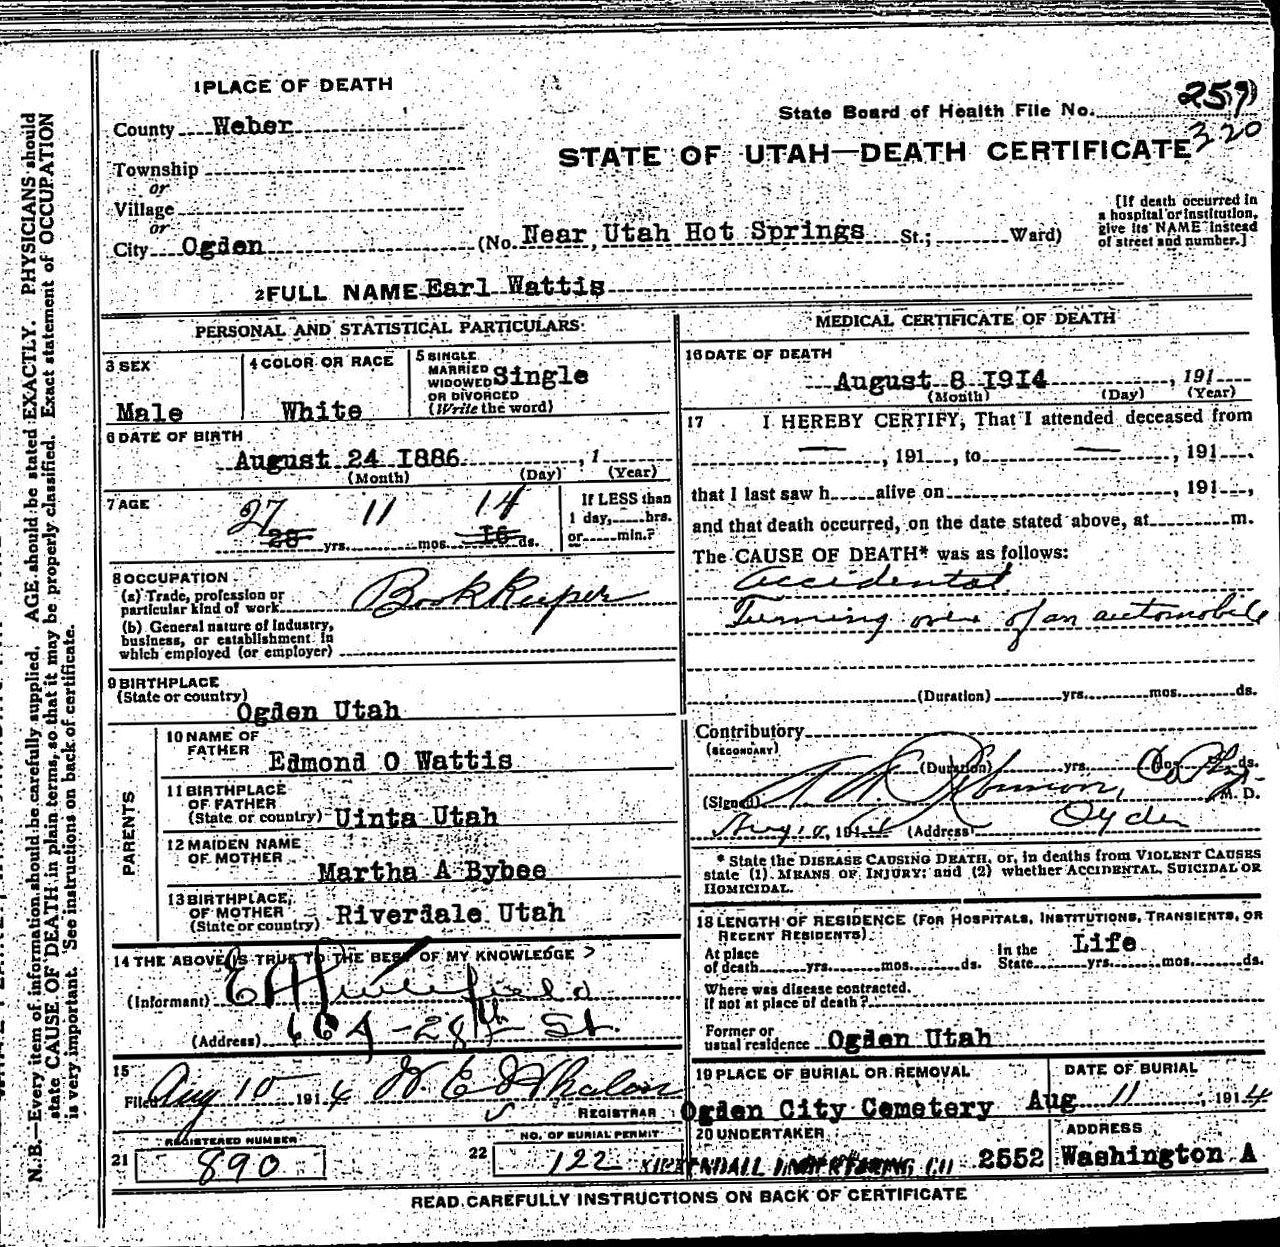 1 PLACE OF DEATH
County Weber
Township
or
Village
or
City Ogden (No. Near Utah Hot Springs St.; Ward)
State Board of Health File No. 259
320
STATE OF UTAH—DEATH CERTIFICATE
[If death occurred in
a hospital or institution,
give its NAME instead
of street and number.]
2 FULL NAME Earl Wattis
PERSONAL AND STATISTICAL PARTICULARS
3 SEX
Male
4 COLOR OR RACE
White
5 SINGLE
MARRIED
WIDOWED
OR DIVORCED
(Write the word)
Single
6 DATE OF BIRTH
August 24 1886, 1
(Month) (Day) (Year)
7 AGE
27 11 14
28 yrs. mos. 16 ds.
If LESS than
1 day, hrs.
or min.?
8 OCCUPATION
(a) Trade, profession or
particular kind of work Bookkeeper
(b) General nature of industry,
business, or establishment in
which employed (or employer)
9 BIRTHPLACE
(State or country)
Ogden Utah
PARENTS
10 NAME OF
FATHER
Edmond O Wattis
11 BIRTHPLACE
OF FATHER
(State or country) Uinta Utah
12 MAIDEN NAME
OF MOTHER
Martha A Bybee
13 BIRTHPLACE
OF MOTHER
(State or country) Riverdale Utah
14 THE ABOVE IS TRUE TO THE BEST OF MY KNOWLEDGE
(Informant) E A
(Address) 664 - 28th St.
15
Filed Aug 10 1914 W. E. Whalen
REGISTRAR
REGISTERED NUMBER
21 890
NO. OF BURIAL PERMIT
22 122
MEDICAL CERTIFICATE OF DEATH
16 DATE OF DEATH
August 8 1914, 191
(Month) (Day) (Year)
17 I HEREBY CERTIFY, That I attended deceased from
— , 191 , to — , 191
that I last saw h alive on , 191 ,
and that death occurred, on the date stated above, at m.
The CAUSE OF DEATH* was as follows:
Accidental
Turning over of an automobile
(Duration) yrs. mos. ds.
Contributory
(SECONDARY)
(Duration) yrs. mos. ds.
(Signed) M. D.
Aug 10, 1914 (Address) Ogden
* State the DISEASE CAUSING DEATH, or, in deaths from VIOLENT CAUSES
state (1) MEANS OF INJURY; and (2) whether ACCIDENTAL, SUICIDAL OR
HOMICIDAL.
18 LENGTH OF RESIDENCE (FOR HOSPITALS, INSTITUTIONS, TRANSIENTS, OR
RECENT RESIDENTS)
At place
of death yrs. mos. ds.
In the
State Life yrs. mos. ds.
Where was disease contracted,
if not at place of death?
Former or
usual residence Ogden Utah
19 PLACE OF BURIAL OR REMOVAL
Ogden City Cemetery
DATE OF BURIAL
Aug 11, 1914
20 UNDERTAKER
KIRKENDALL UNDERTAKING CO
ADDRESS
2552 Washington A
READ CAREFULLY INSTRUCTIONS ON BACK OF CERTIFICATE
N. B.—Every item of information should be carefully supplied. AGE should be stated EXACTLY. PHYSICIANS should
state CAUSE OF DEATH in plain terms, so that it may be properly classified. Exact statement of OCCUPATION
is very important. See instructions on back of certificate.